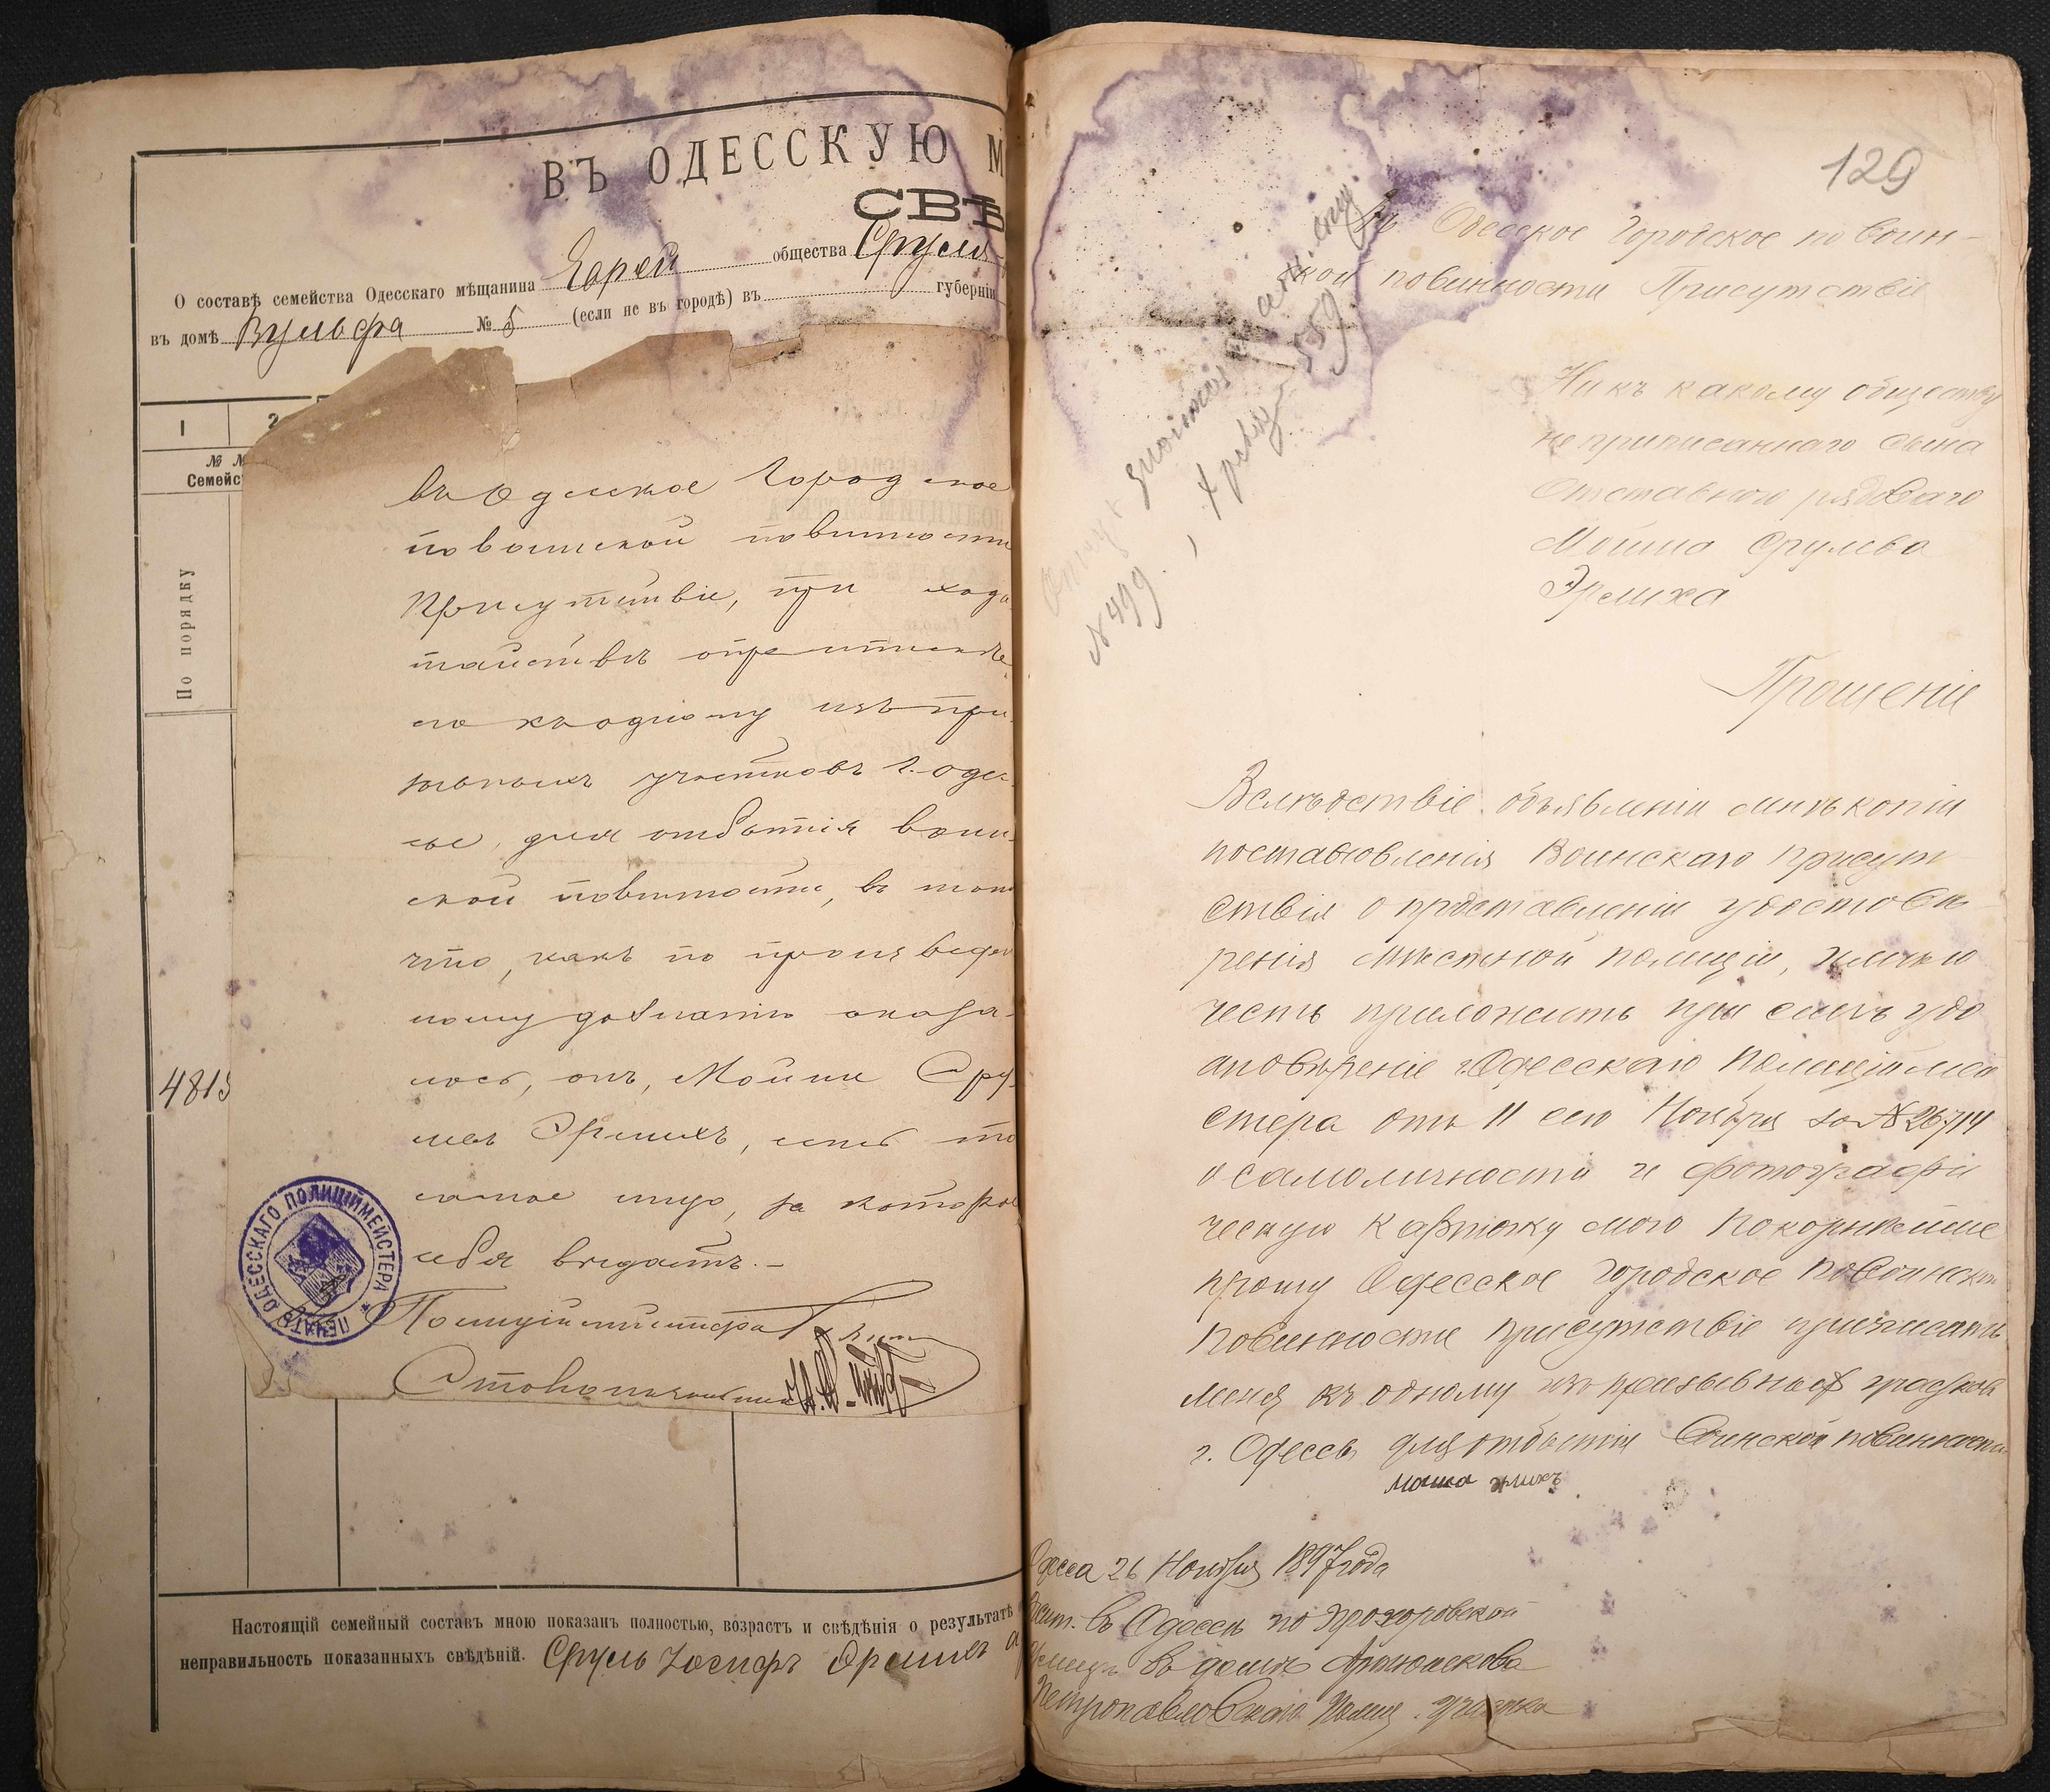 ВЪ ОДЕССКУЮ М
СВѢ
О составѣ семейства Одесскаго мѣщанина Еврей общества Сруля
въ домѣ Вульфа № 5 (если не въ городѣ) въ губерніи
1 2
№ №
Семейс
По порядку
4813
Въ Одесское Город ское
по воинской повинности
Присутствіе, при хода
тайствѣ о припискѣ
его къ одному изъ при
зывныхъ участковъ г. Одес
сы, для отбытія воин
ской повинности, въ томъ
что, какъ по произведен
ному дознанію оказа-
лось, онъ, Мойше Сру-
лев Эрлихъ, есть то
самое лицо, за которое
себя выдаетъ.-
Полиціймейстера
Столоначальникъ
ПЕЧАТЬ ОДЕССКАГО ПОЛИЦІЙМЕЙСТЕРА
Настоящій семейный составъ мною показанъ полностью, возрастъ и свѣдѣнія о результатѣ
неправильность показанныхъ свѣдѣній. Сруль Іосифъ Эрлихъ а
129
Въ Одесское Городское по воин-
ской повинности Присутствіе
Ни къ какому обществу
не приписаннаго сына
Отставного рядоваго
Мойша Срулева
Эрлиха
№ 499. 559
Прошеніе
Вслѣдствіе объявленіи мнѣ копіи
постановленія Воинскаго присут
ствія о представленіи удостовѣ
ренія мѣстной полиціи, имѣю
честь приложить при семъ удо
стовѣреніе г. Одесскаго Полиціймей
стера отъ 11 сего Ноября за № 26714
о самоличности и фотографи
ческую карточку мою покорнѣйше
прошу Одесское городское по воинской
повинности присутствіе приписать
меня къ одному изъ призывныхъ участков
г. Одессы для отбытія воинской повинности
Мошка Эрлихъ
Одесса 26 Ноября 1897 года
Жит. въ Одессѣ по Прохоровской
улицѣ въ домѣ Артюнскова
Петропавловскаго Полиц. участка